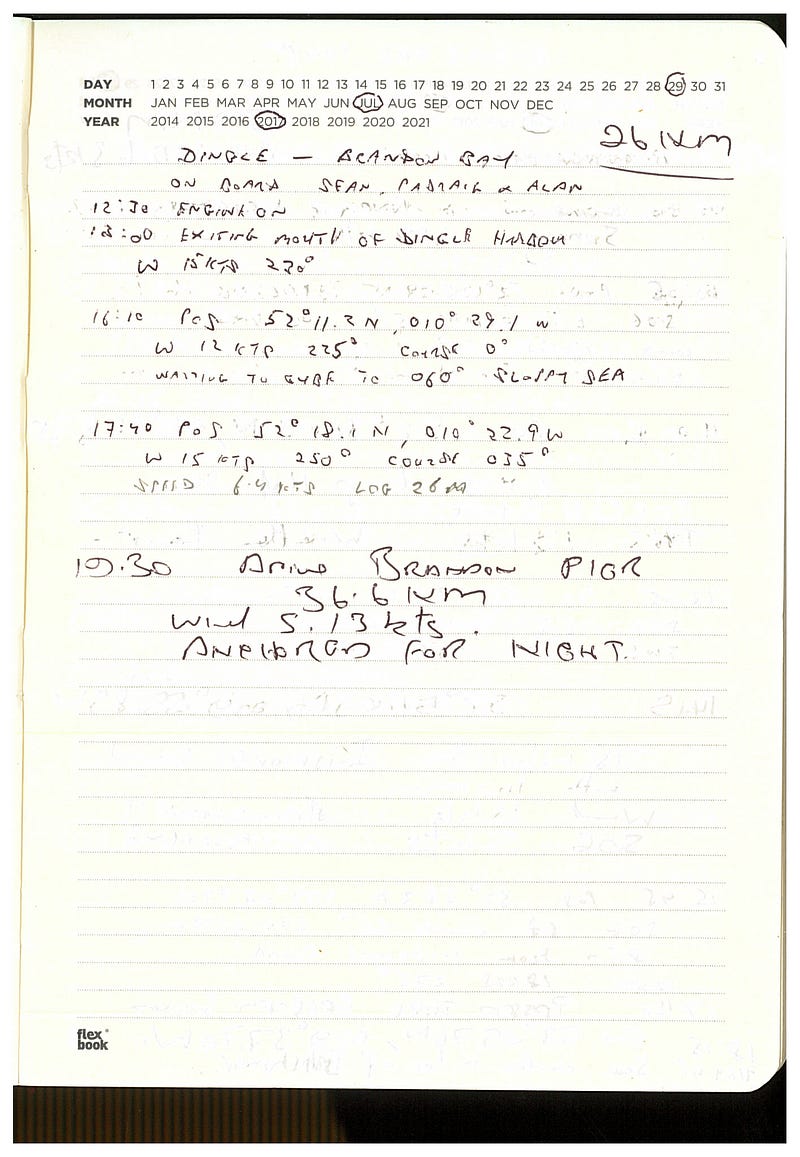 DAY 1 2 3 4 5 6 7 8 9 10 11 12 13 14 15 16 17 18 19 20 21 22 23 24 25 26 27 28 29 30 31
MONTH JAN FEB MAR APR MAY JUN JUL AUG SEP OCT NOV DEC
YEAR 2014 2015 2016 2017 2018 2019 2020 2021
26 NM
DINGLE — BRANDON BAY
ON BOARD SEAN, PADRAIG & ALAN
12:30 ENGINE ON
13:00 EXITING MOUTH OF DINGLE HARBOUR
W 15 KTS 230°
16:10 POS 52° 11.2 N, 010° 29.1 W
W 12 KTS 225° COURSE 0°
WAITING TO GYBE TO 060° SLOPPY SEA
17:40 POS 52° 18.1 N, 010° 22.9 W
W 15 KTS 250° COURSE 035°
SPEED 6.4 KTS LOG 26 M
19.30 BRANDON PIER
36.6 NM
Wind 5.13 kts.
ANCHORED FOR NIGHT.
flex book